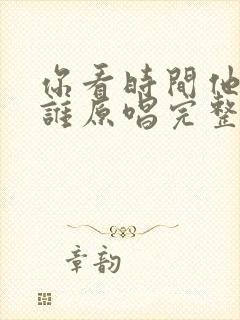 你看時間他
誰原唱完整
章韵